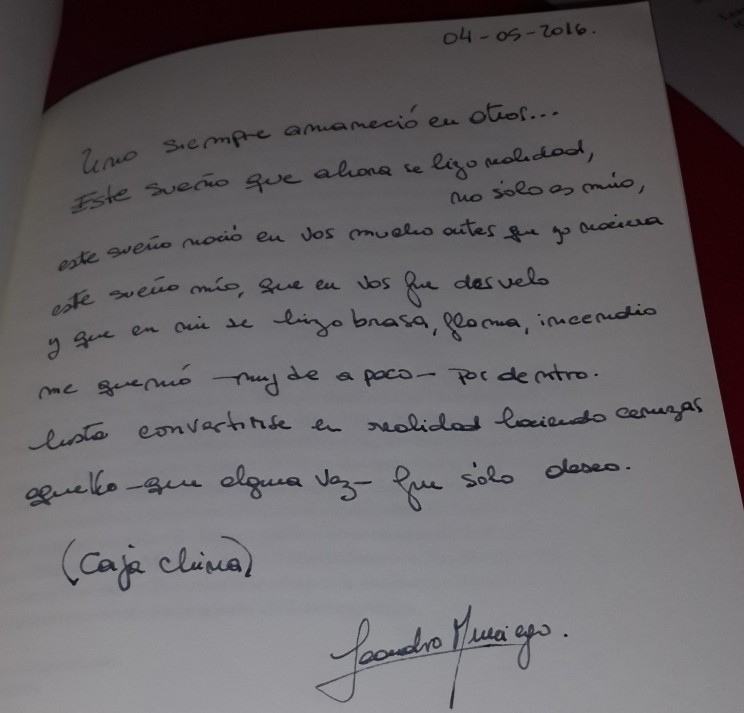 04-05-2016.
Uno siempre amaneció en otros...
Este sueño que ahora se hizo realidad,
no sólo es mío,
este sueño nació en vos mucho antes que yo naciera
este sueño mío, que en vos fue desvelo
y que en mi se hizo brasa, flama, incendio
me quemó -muy de a poco- por dentro.
hasta convertirse en realidad haciendo cenizas
aquello -que alguna vez- fue sólo deseo.
(Caja china)
Leandro Murciego.